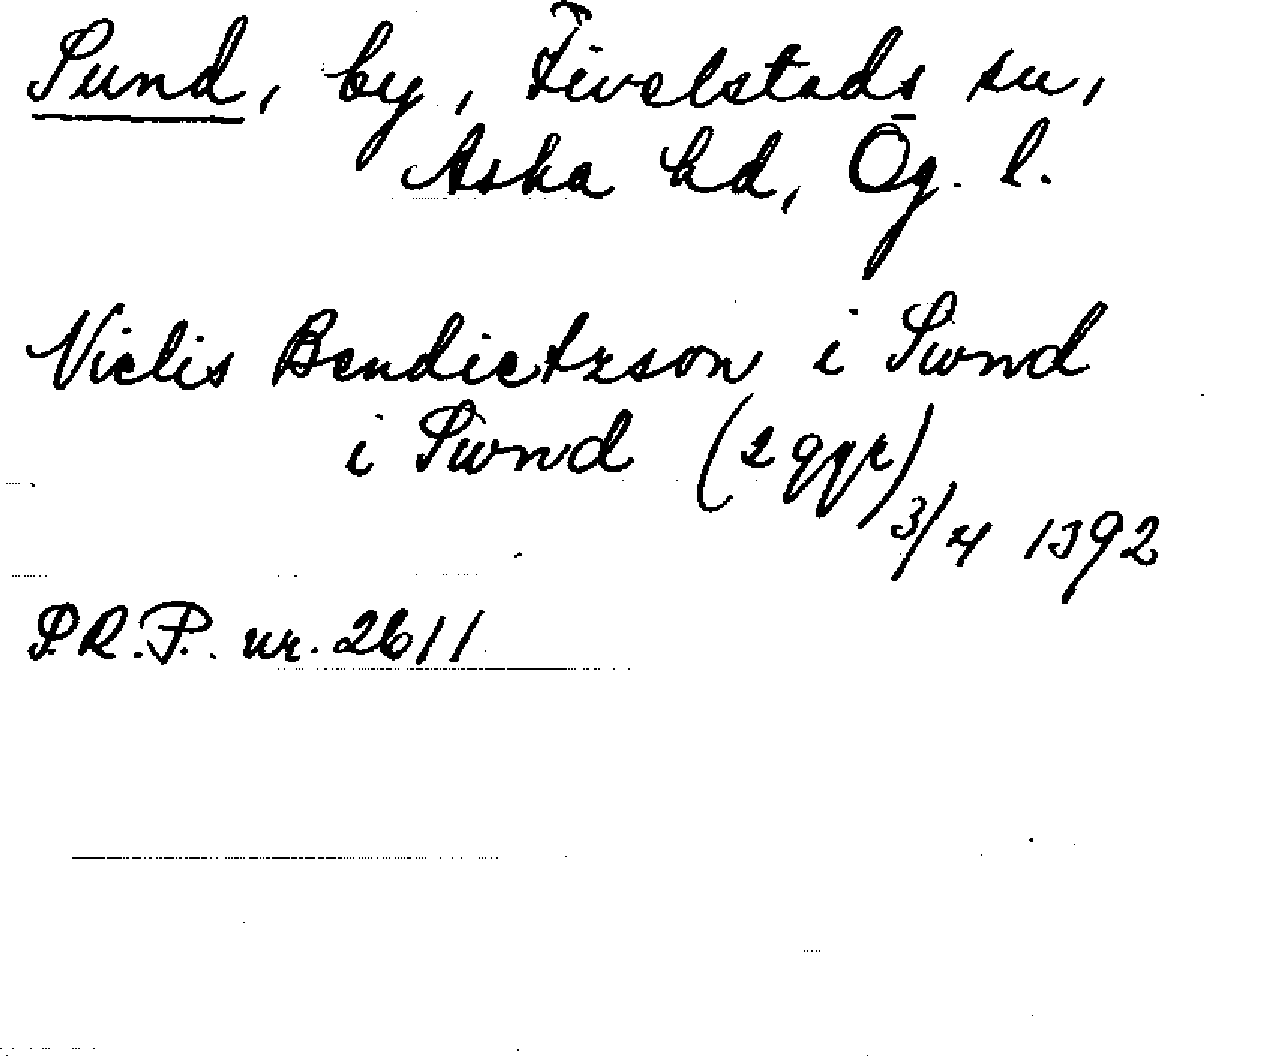 Sund, by, Fivelstads sn,
Aska hd, Ög. l.
Niclis Bendictzson i Swnd
i Swnd (2 ggr)
3/4 1392
P.R.P. nr. 2611